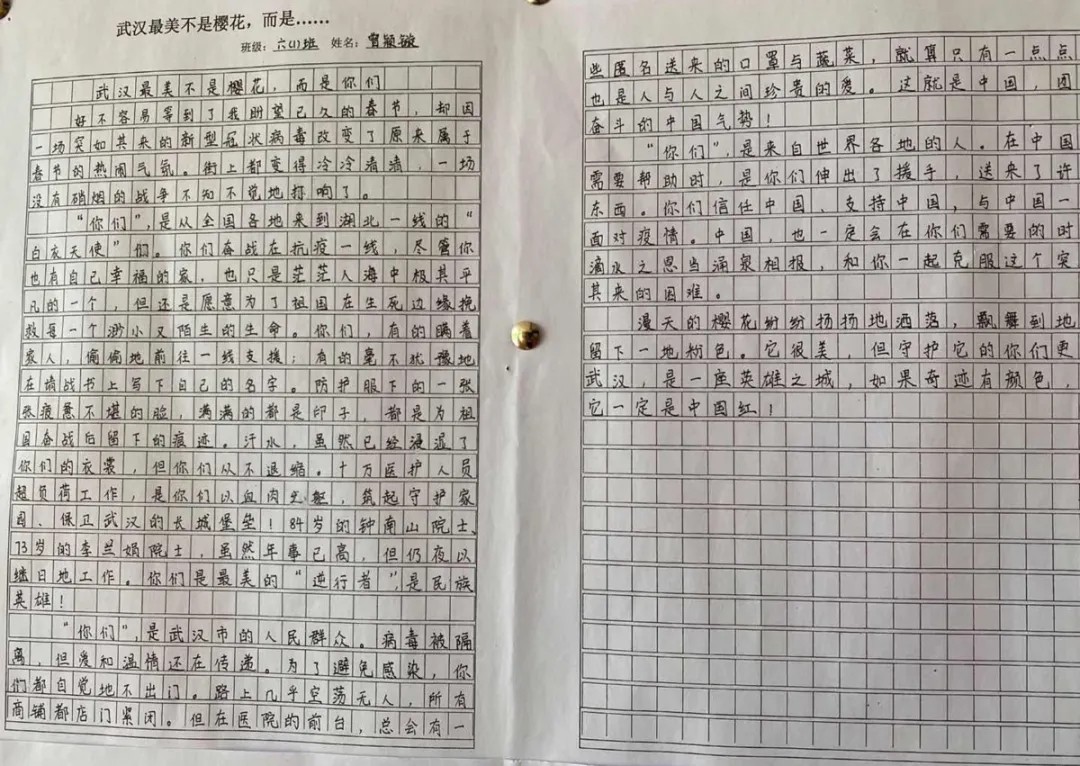 武汉最美不是樱花，而是……
班级：六(1)班 姓名：曾颖璇
武汉最美不是樱花，而是你们
好不容易等到了我盼望已久的春节，却因
一场突如其来的新型冠状病毒改变了原来属于
春节的热闹气氛。街上都变得冷冷清清，一场
没有硝烟的战争不知不觉地打响了。
“你们”，是从全国各地来到湖北一线的“
白衣天使”们。你们奋战在抗疫一线，尽管你
也有自己幸福的家，也只是茫茫人海中极其平
凡的一个，但还是愿意为了祖国在生死边缘挽
救每一个渺小又陌生的生命。你们，有的瞒着
家人，偷偷地前往一线支援；有的毫不犹豫地
在请战书上写下自己的名字。防护服下的一张
张疲惫不堪的脸，满满的都是印子，都是为祖
国奋战后留下的痕迹。汗水，虽然已经浸湿了
你们的衣裳，但你们从不退缩。十万医护人员
超负荷工作，是你们以血肉之躯，筑起守护家
园、保卫武汉的长城堡垒！84岁的钟南山院士、
73岁的李兰娟院士，虽然年事已高，但仍夜以
继日地工作。你们是最美的“逆行者”，是民族
英雄！
“你们”，是武汉市的人民群众。病毒被隔
离，但爱和温情还在传递。为了避免感染，你
们都自觉地不出门。路上几乎空荡无人，所有
商铺都店门紧闭。但在医院的前台，总会有一
些匿名送来的口罩与蔬菜，就算只有一点点
也是人与人之间珍贵的爱。这就是中国，团
奋斗的中国气势！
“你们”，是来自世界各地的人。在中国
需要帮助时，是你们伸出了援手，送来了许
东西。你们信任中国、支持中国，与中国一
面对疫情。中国，也一定会在你们需要的时
滴水之恩当涌泉相报，和你一起克服这个突
其来的困难。
漫天的樱花纷纷扬扬地洒落，飘舞到地
留下一地粉色。它很美，但守护它的你们更
武汉，是一座英雄之城，如果奇迹有颜色，
它一定是中国红！